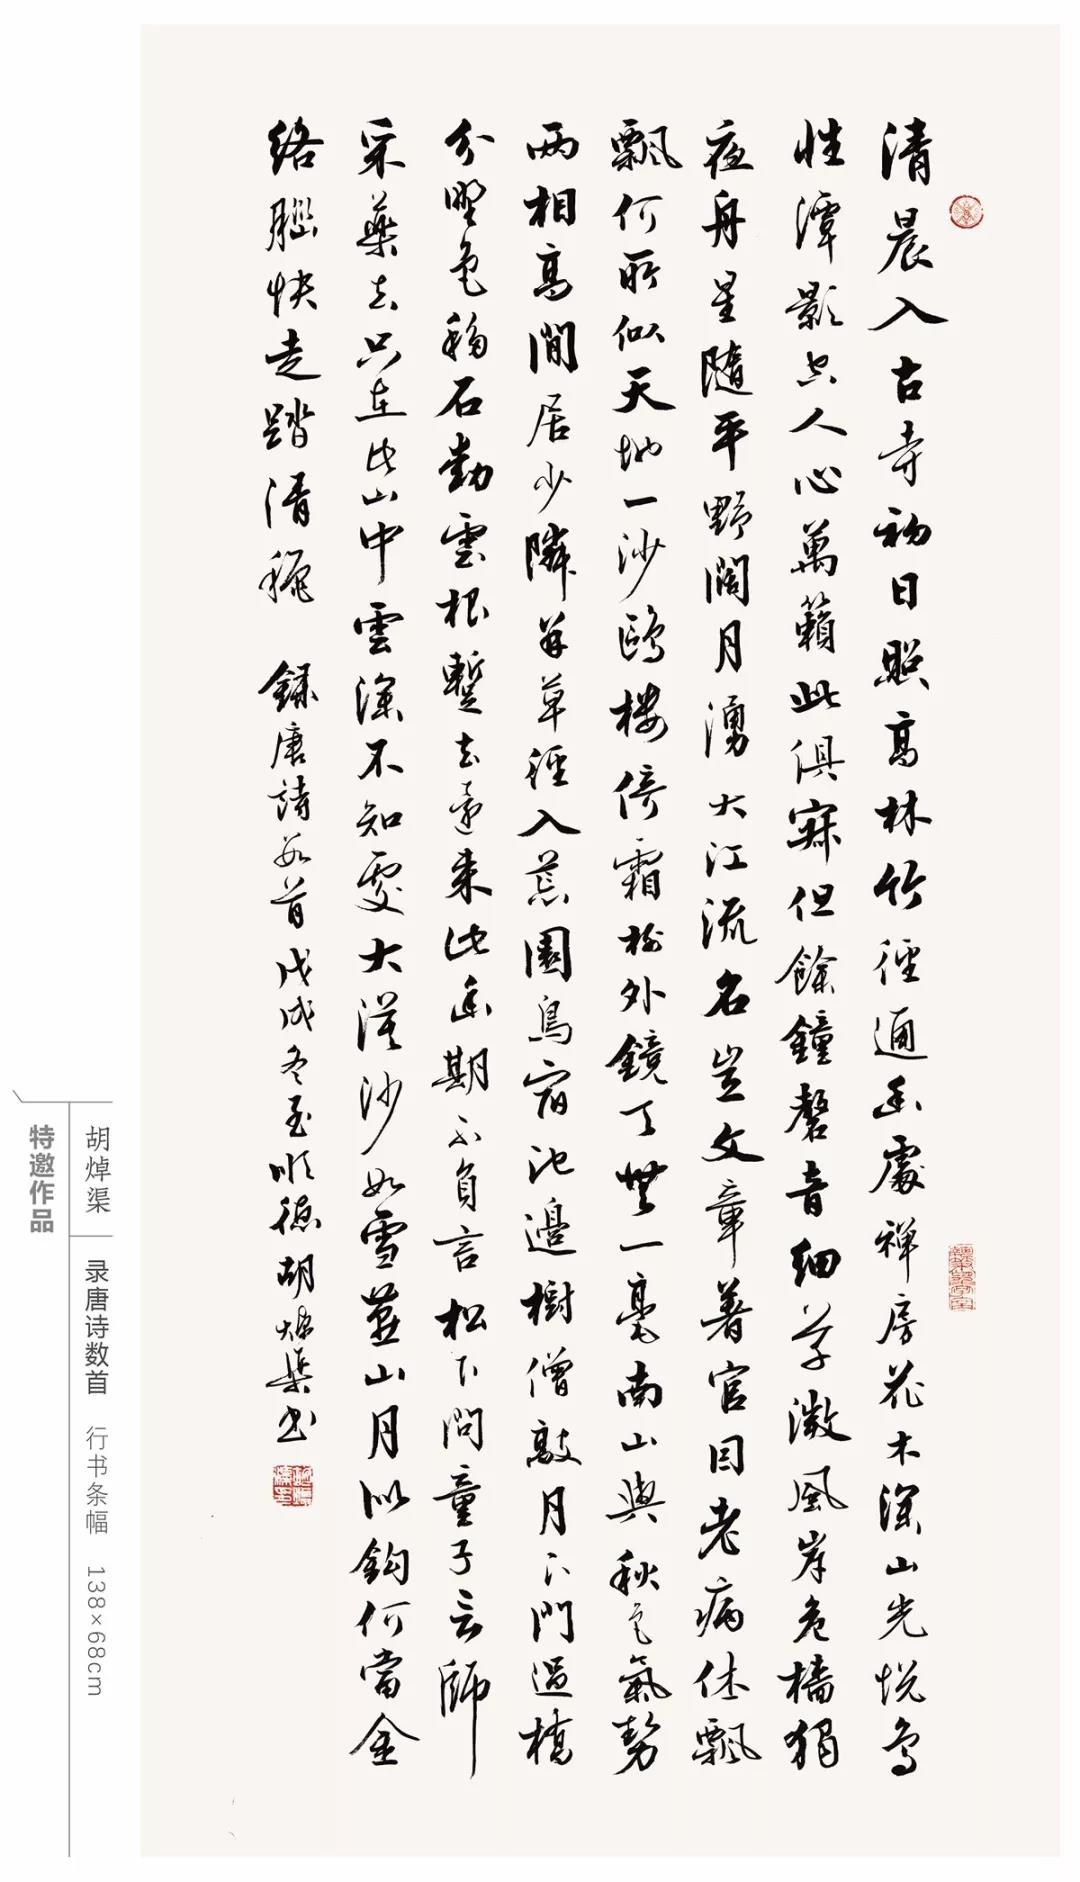 清晨入古寺初日照高林竹徑通幽處禅房花木深山光悦鸟
性潭影空人心萬籟此俱寂但餘鐘磬音細草微風岸危檣獨
夜舟星隨平野闊月湧大江流名豈文章著官因老病休飄
飄何所似天地一沙鷗樓倚霜樹外鏡天無一毫南山與秋色氣勢
两相高閒居少隣並草徑入荒園鳥宿池邊樹僧敲月下門過橋
分野色移石動雲根暫去還来此幽期不負言松下問童子言師
采藥去只在此山中雲深不知處大漠沙如雪燕山月似鈎何當金
絡腦快走踏清秋 錄唐詩數首戊戌冬至順德胡焯渠書
胡焯渠 录唐诗数首 行书条幅 138×68cm
特邀作品